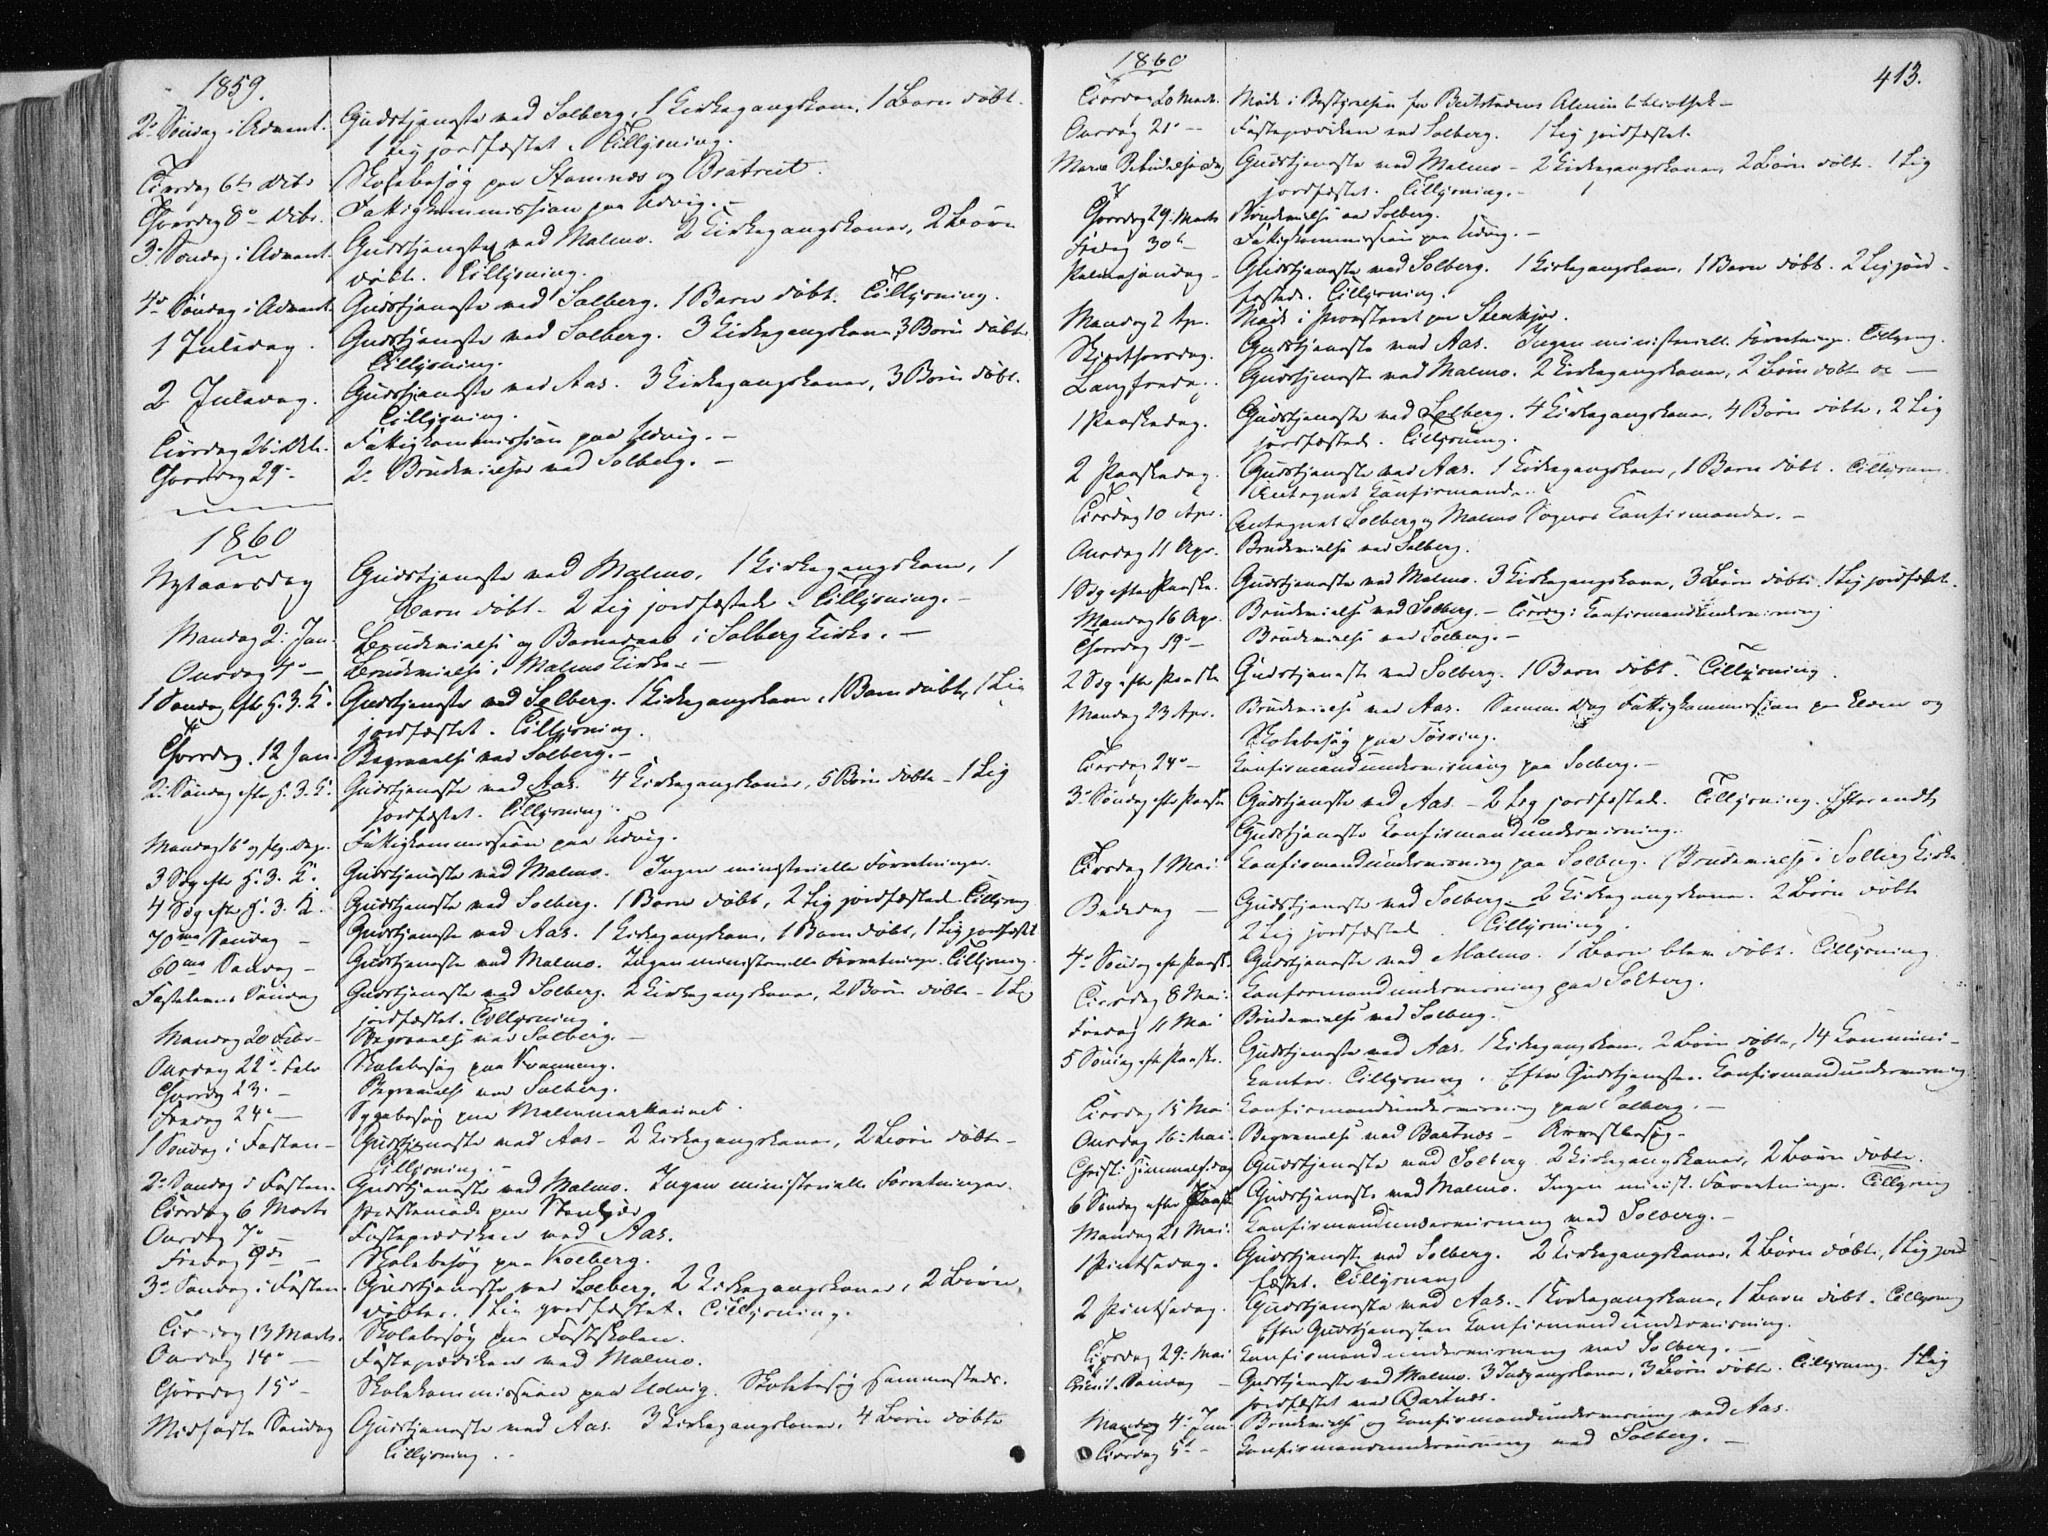 1859.
2º Søndag i Advent. Gudstjeneste ved Solberg, 1 Kirkegangskone, 1 Barn døbt.
1 Lig jordfæstet. Tillysning.
Tirsdag 6te Debr Skolebesøg paa Stamnæs og Bratreit.
Thorsdag 8º Debr. Fattigkommission paa Udvig. -
3º Søndag i Advent. Gudstjeneste ved Malmo. 2 Kirkegangskoner, 2 Børn
døbt. Tillysning.
4º Søndag i Advent. Gudstjeneste ved Solberg. 1 Barn døbt. Tillysning.
1 Juledag. Gudstjeneste ved Solberg. 3 Kirkegangskoner, 3 Børn døbte
Tillysning.
2 Juledag. Gudstjeneste ved Aas. 3 Kirkegangskoner, 3 Børn døbt.
Tillysning.
Fattigkommission paa Udvig. -
Thorsdag 29 - 2 Brudevielser ved Solberg. -
1860
Nytaarsdag Gudstjeneste ved Malmo, 1 Kirkegangskone, 1
Barn døbt - 2 Lig jordfæstede. Tillysning. -
Mandag 2: Jan. Brudevielse og Barnedaab i Solberg Kirke. -
Onsdag 4º - Brudevielse i Malmo Kirke. -
1 Søndag eftr H. 3. K. Gudstjeneste ved Solberg. 1 Kirkegangskone, 1 Barn døbt, 1 Lig
jordfæstet. Tillysning.
Thorsdag 12 Jan. Begravelse ved Solberg. -
2: Søndag eftr H. 3. K. Gudstjeneste ved Aas. 4 Kirkegangskoner, 5 Børn døbte - 1 Lig
jordfæstet. Tillysning.
Mandag 16º og flg. Dag. Fattigkommission paa Udvig.
3 Søg eftr H. 3. K. Gudstjeneste ved Malmo. Ingen ministerielle Forretninger.
4 Søg eftr H. 3. K. Gudstjeneste ved Solberg. 1 Barn døbt, 2 Lig jordfæstede. Tillysng
70me Søndag - Gudstjeneste ved Aas. 1 Kirkegangskone, 1 Barn døbt, 1 Lig jordfæstet
60me Søndag - Gudstjeneste ved Malmo. Ingen ministerielle Forretninger. Tillysning.
Fastelavns Søndag Gudstjeneste ved Solberg. 2 Kirkegangskoner, 2 Børn døbte - 1 Lig
jordfæstet. Tillysning.
Mandag 20 Febr - Begravelse ved Solberg. -
Onsdag 22º Febr Skolebesøg paa
Thorsdag 23. - Begravelse ved Solberg.
Fredag 24º - Sygebesøg paa
1 Søndag i Fasten - Gudstjeneste ved Aas - 2 Kirkegangskoner, 2 Børn døbte -
Tillysning. -
2º Søndag i Fasten. Gudstjeneste ved Malmo. Ingen ministerielle Forretninger.
Tirsdag 6 Marts Præstemøde paa Stenkjær
Onsdag 7º - Fasteprædiken ved Aas.
Fredag 9de - Skolebesøg paa
3º Søndag i Fasten. Gudstjeneste ved Solberg, 2 Kirkegangskoner, 2 Børn
døbte. 1 Lig jordfæstet. Tillysning.
Tirsdag 13 Marts. Skolebesøg paa Fastskolen.
Onsdag 14º - Fasteprædiken ved Malmo.
Thorsdag 15º - Skolekommission paa Udvig. Skolebesøg sammesteds.
Midfaste Søndag Gudstjeneste ved Aas. 3 Kirkegangskoner, 4 Børn døbte
Tillysning. -
1860
413.
Tirsdag 20 Marts. Møde i Bestyrelsen for Beitstadens Almuebibliothek -
Onsdag 21º - Fasteprædiken ved Solberg. 1 Lig jordfæstet.
Mariæ Bebudelsesdag Gudstjeneste ved Malmo - 2 Kirkegangskoner, 2 Børn døbte. 1 Lig
jordfæstet. Tillysning. -
Thorsdag 29: Marts Brudevielse ved Solberg.
Fredag 30te - Fattigkommission paa Udvig. -
Palmesøndag - Gudstjeneste ved Solberg. 1 Kirkegangskone, 1 Barn døbt. 2 Lig jord-
fæstede. Tillysning.
Mandag 2 Apr. Møde i Provsteret paa Stenkjær.
Skjærthorsdag. Gudstjeneste ved Aas. Ingen ministerielle Forretninger. Tillysng.
Langfredag. Gudstjeneste ved Malmo. 2 Kirkegangskoner, 2 Børn døbte -
1 Paaskedag. Gudstjeneste ved Solberg. 4 Kirkegangskoner, 4 Børn døbte, 2 Lig
jordfæstede. Tillysning.
2 Paaskedag. Gudstjeneste ved Aas. 1 Kirkegangskone, 1 Barn døbt. Tillysning.
Antegnet Konfirmander.
Tirsdag 10 Apr. Antegnet Solberg og Malmo Sognes Konfirmander. -
Onsdag 11 Apr. Brudevielse ved Solberg.
1 Søg efter Paaske. Gudstjeneste ved Malmo. 3 Kirkegangskoner, 3 Børn døbte. 1 Lig jordfæstet.
Mandag 16 Apr. Brudevielse ved Solberg. - Tirsdag: Konfirmandundervisning.
Thorsdag 19º - Brudevielse ved Solberg. -
2 Søg efter Paaske Gudstjeneste ved Solberg. 1 Barn døbt. Tillysning.
Mandag 23 Apr. Brudevielse ved Aas. Samme Dag Fattigkommission paa og
Skolebesøg paa
Tirsdag 24º - Konfirmandundervisning paa Solberg. -
3º Søndag eftr Paaske Gudstjeneste ved Aas - 2 Lig jordfæstede. Tillysning. Efter endt
Gudstjeneste Konfirmandundervisning.
Tirsdag 1 Mai. Konfirmandundervisning paa Solberg. Brudevielse i Solberg Kirke.
Bededag - Gudstjeneste ved Solberg - 2 Kirkegangskoner. 2 Børn døbte
2 Lig jordfæstede. Tillysning.
4º Søndag eftr Paaske. Gudstjeneste ved Malmo. 1 Barn blev døbt. Tillysning.
Tirsdag 8 Mai. Konfirmandundervisning paa Solberg.
Fredag 11 Mai Brudevielse ved Solberg.
5 Søndag eftr Paaske. Gudstjeneste ved Aas. 1 Kirkegangskone, 2 Børn døbte, 14 Kommuni-
kanter. Tillysning. Efter Gudstjenesten Konfirmandundervisning
Tirsdag 15 Mai Konfirmandundervisning paa Solberg. -
Onsdag 16: Mai. Begravelse ved Bartnæs -
Christi Himmelf.dag Gudstjeneste ved Solberg. 2 Kirkegangskoner, 2 Børn døbte.
6 Søndag efter Paaske Gudstjeneste ved Malmo. Ingen minist. Forretninger. Tillysning
Mandag 21 Mai. Konfirmandundervisning ved Solberg. -
1 Pintsedag. Gudstjeneste ved Solberg. 2 Kirkegangskoner, 2 Børn døbte, 1 Lig jord-
fæstet. Tillysning
2 Pintsedag. Gudstjeneste ved Aas. - 1 Kirkegangskone, 1 Barn døbt. Tillysning
Efter Gudstjenesten Konfirmandundervisning.
Tirsdag 29: Mai Konfirmandundervisning ved Solberg. -
Trinit. Søndag - Gudstjeneste ved Malmo. 3 Indgangskoner, 3 Børn døbte. Tillysning. 1 Lig
jordfæstet ved Bartnæs.
Mandag 4: Juni Brudevielse og Konfirmandundervisning ved Aas.
Tirsdag 5t - Konfirmandundervisning ved Solberg. -